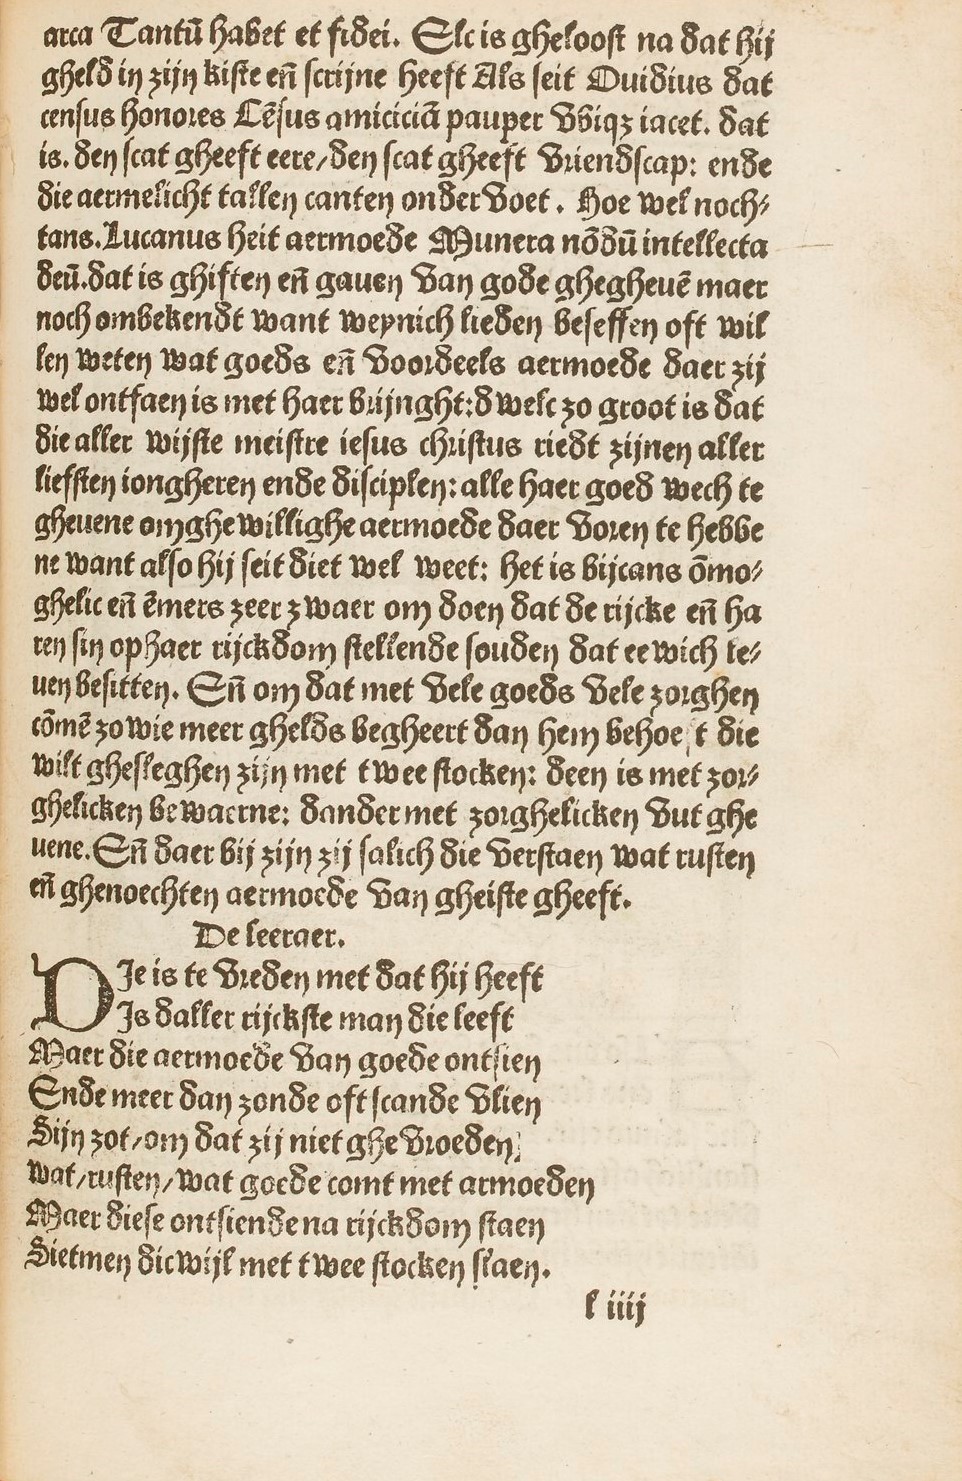 arca Tantū habet et fidei. Elc is gheloost na dat hij
gheld in zijn kiste eñ scrijne heeft Als seit Ouidius dat
census honores Cēsus amiciciā pauper vbiqꝫ iacet. dat
is. den scat gheeft eere/den scat gheeft vriendscap: ende
die aermelicht tallen canten onder voet. Hoe wel noch⸗
tans.Lucanus heit aermoede Munera nōdū intellecta
deū.dat is ghiften eñ gauen van gode ghegheuē maer
noch ombekendt want weynich lieden beseffen oft wil
len weten wat goeds eñ voordeels aermoede daer zij
wel ontfaen is met haer brijnght:dwelc zo groot is dat
die aller wijste meistre iesus christus riedt zijnen aller
liefsten iongheren ende disciplen: alle haer goed wech te
gheuene om ghewillighe aermoede daer voren te hebbe
ne want also hij seit diet wel weet: het is bijcans ōmo⸗
ghelic eñ ēmers zeer zwaer om doen dat de rijcke eñ ha
ren sin op haer rijckdom stellende souden dat eewich le⸗
uen besitten. Eñ om dat met vele goeds vele zorghen
cōmē zo wie meer ghelds begheert dan hem behoeft die
wilt ghesleghen zijn met twee stocken: deen is met zor⸗
ghelicken bewaerne: dander met zorghelicken vut ghe
uene.Eñ daer bij zijn zij salich die verstaen wat rusten
eñ ghenoechten aermoede van gheiste gheeft.
De leeraer.
DIe is te vreden met dat hij heeft
Is daller rijckste man die leeft
Maer die aermoede van goede ontsien
Ende meer dan zonde oft scande vlien
Sijn zot/om dat zij niet ghevroeden
wat/rusten/wat goede comt met armoeden
Maer diese ontsiende na rijckdom staen
Sietmen dicwijl met twee stocken slaen.
l iiij